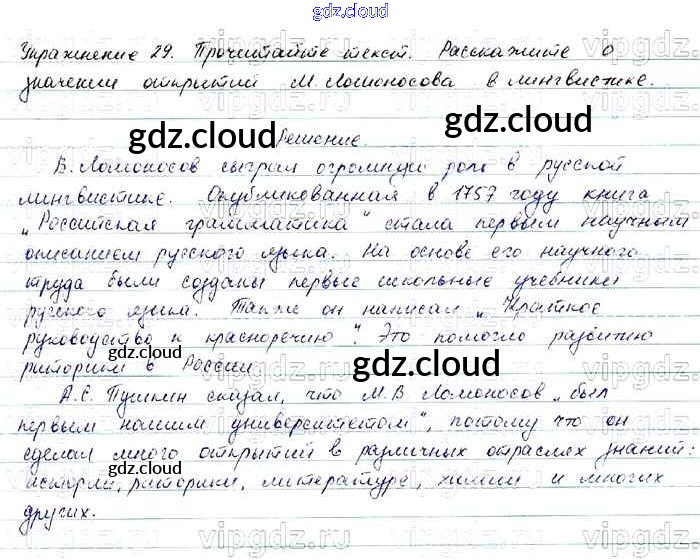 gdz.cloud
Упражнение 29. Прочитайте текст. Расскажите о
значении открытий М. Ломоносова в лингвистике.
gdz.cloud
gdz.cloud
Решение.
В. Ломоносов сыграл огромную роль в русской
лингвистике. Опубликованная в 1757 году книга
„Российская грамматика" стала первым научным
описанием русского языка. На основе его научного
труда были созданы первые школьные учебники
русского языка. Также он написал „Краткое
руководство к красноречию". Это помогло развитию
риторики в России.
gdz.cloud
gdz.cloud
А.С. Пушкин сказал, что М.В Ломоносов „был
первым нашим университетом", потому что он
сделал много открытий в различных отраслях знаний:
истории, риторики, литературе, химии и многих
других.
gdz.cloud
gdz.cloud
vipgdz.ru